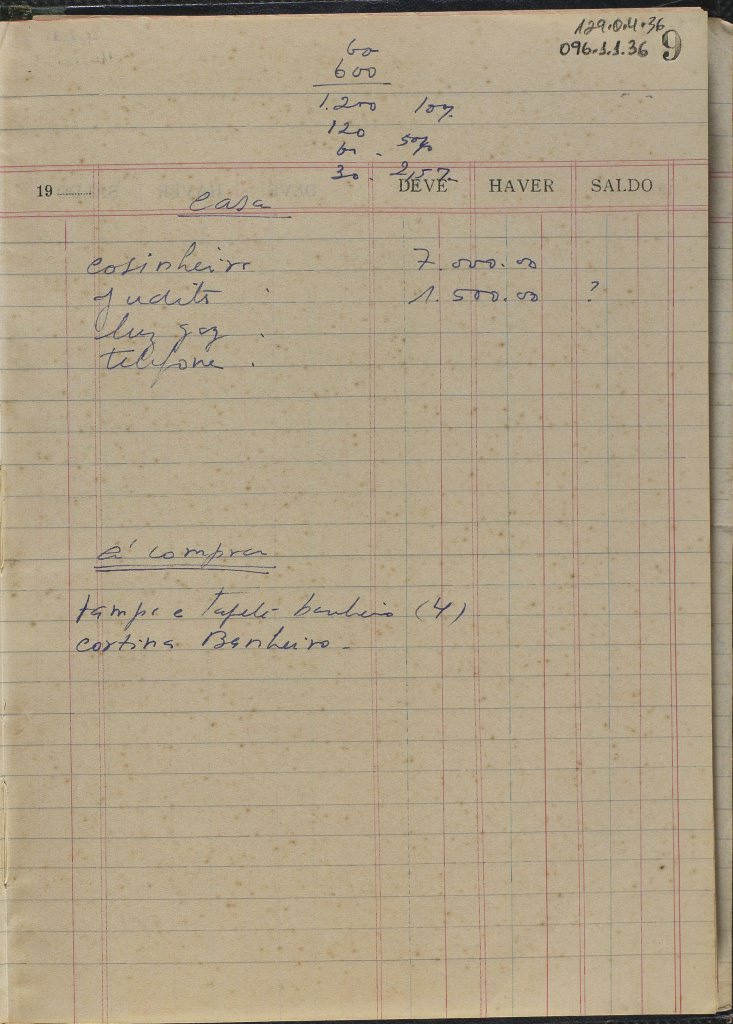 129.0.4.36
096.1.1.36 9
60
600
1.200 10%
120
60 - 5%
30 - 2,5%
19 DEVE HAVER SALDO
Casa
cosinheiro 7.000.00
Judite 1.500.00 ?
luz gaz
telefone
á comprar
tampa e tapete banheiro (4)
cortina Banheiro -